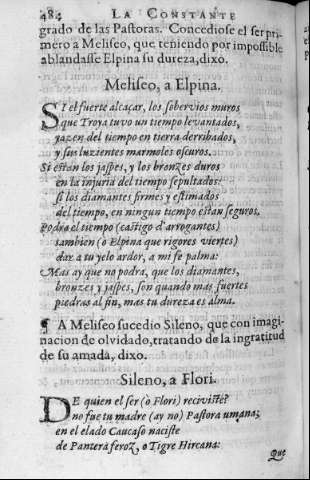 484 LA CONSTANTE
grado de las Pastoras. Concediose el ser pri-
mero a Meliseo, que teniendo por impossible
ablandasse Elpina su dureza, dixo.
Meliseo, a Elpina.
SI el fuerte alcaçar, los sobervios muros
que Troya tuvo un tiempo levantados,
yazen del tiempo en tierra derribados,
y sin luzientes marmoles oscuros.
Si estan los jaspes, y los bronzes duros
en la injuria del tiempo sepultados:
si los diamantes firmes y estimados
del tiempo, en ningun tiempo estan seguros.
Podra el tiempo (castigo d'arrogantes)
tambien (o Elpina que rigores viertes)
dar a tu yelo ardor, a mi fe palma:
Mas ay que no podra, que los diamantes,
bronzes y jaspes, son quando mas fuertes
piedras al fin, mas tu dureza es alma.
¶ A Meliseo sucedio Sileno, que con imagi-
nacion de olvidado, tratando de la ingratitud
de su amada, dixo.
Sileno, a Flori.
DE quien el ser (o Flori) reciviste?
no fue tu madre (ay no) Pastora umana;
en el elado Caucaso naciste
de Panzera feroz, o Tigre Hircana:
Que